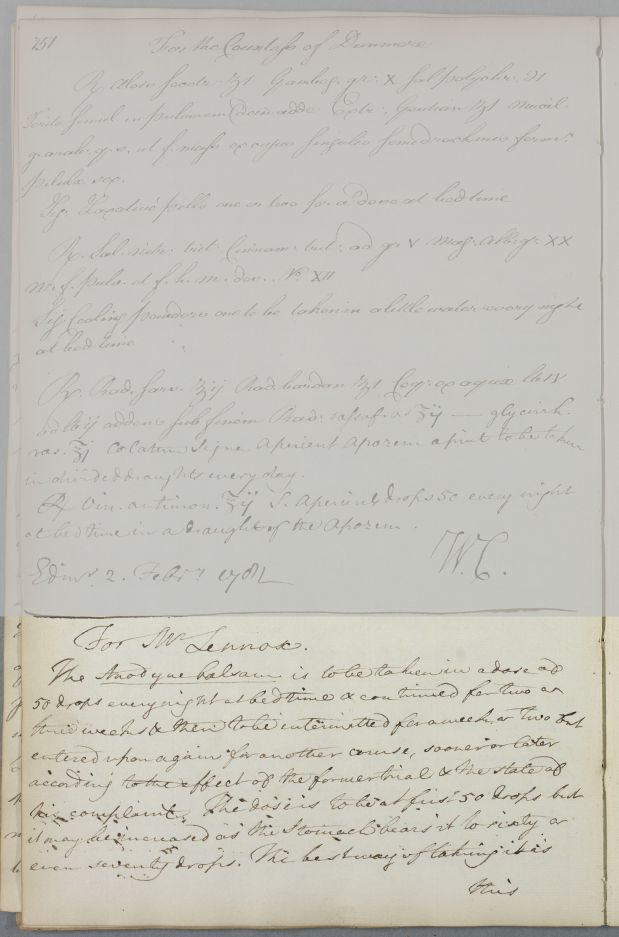 251
For the Countess of Dunmore
℞ Aloes socotr. ʒi Gambog. gr. X Sal polychr. ℈i
Terito simul in pulverem dein adde Extr. Gentian ʒi mucil.
g. arab. q. s. ut f. massa ex cujus singulis semidrachmis form.r
pilulæ sex.
Sig. Laxative pills one or two for a dose at bed time
℞ Sal. nitr. trit. Cinnam. trit. ad gr. V Mag. alb. gr. XX
m. f. pulv. d. f. h. m. dos. No. XII
Sig. Cooling powders one to be taken in a little water every night
at bed time
℞. Rad. sars. ʒij Rad. bardan ʒi Coq. ex aquæ lb iv
ad lb ij addens sub finem Rad. sassafras ʒij — glycirrh.
ras. ʒi Colatur Signe Aperient Apozem a pint to be taken
in divided draughts every day.
℞ Vin. antimon. ʒij S. Aperient drops 50 every night
at bed time in a draught of the Apozem.
W.C.
Edin.r 2. Feb.ry 1781
For Mr Lennox.
The Anodyne balsam is to be taken in a dose of
50 drops every night at bedtime & continued for two or
three weeks & then to be intermitted for a week or two but
entered upon again for another course, sooner or later
according to the effect of the former trial & the state of
his complaint. The dose is to be at first 50 drops but
it may be increased as the Stomach bears it to sixty or
even seventy drops. The best way of taking it is
this